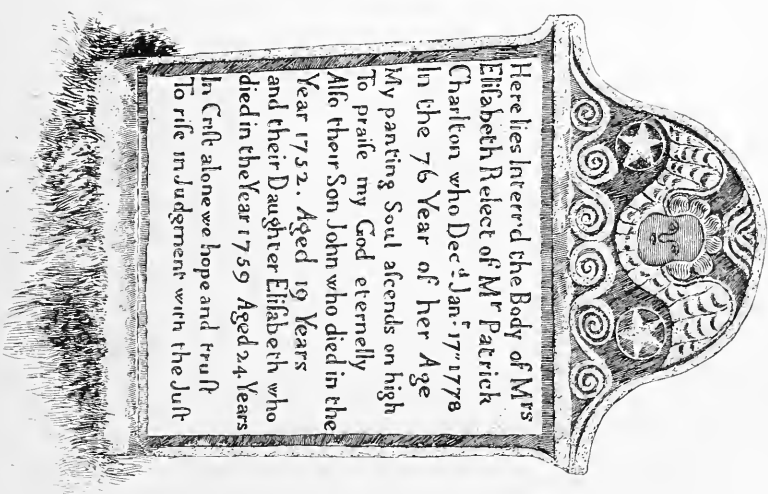 Here lies Interr'd the Body of Mrs
Eliſabeth Relect of Mr Patrick
Charlton who Decd. Janr. 17" 1778
In the 76 Year of her Age
My panting Soul aſcends on high
To praiſe my God eternelly
Alſo their Son John who died in the
Year 1752. Aged 19 Years
and their Daughter Eliſabeth who
died in the Year 1759 Aged 24 Years
In Criſt alone we hope and truſt
To riſe in Judgment with the Juſt